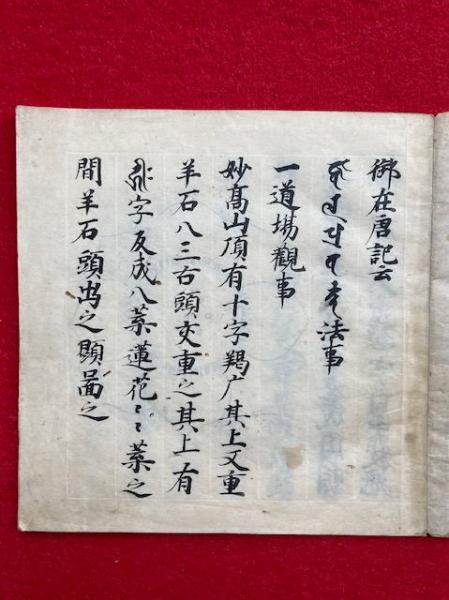 御在唐記云
法事
一道場觀事
妙髙山頂有十字羯广其上又重
羊石八三古頭交重之其上有
字反成八葉蓮花〻〻葉之
間羊石頭出之顕啚之